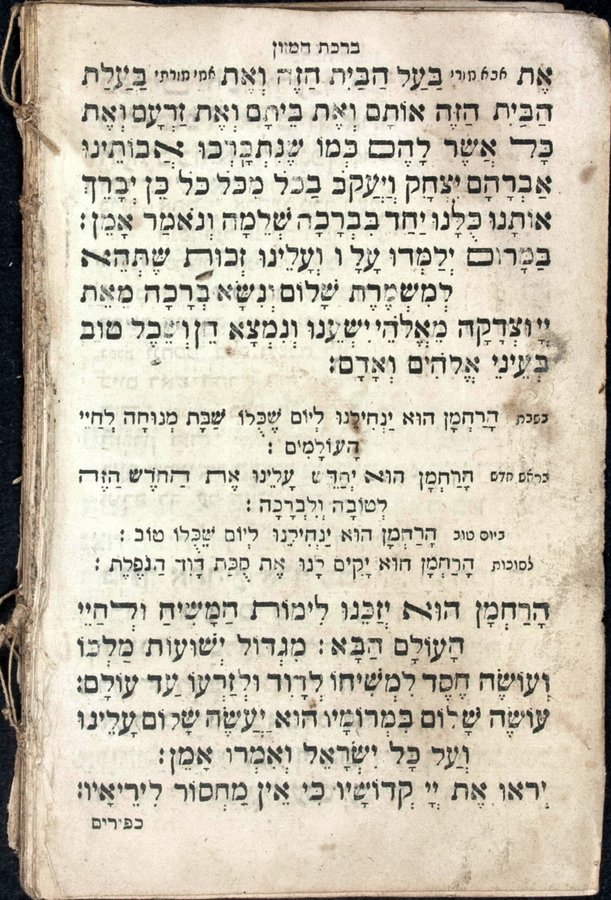 ברכת המזון
אֶת אבא מורי בַּעַל הַבַּיִת הַזֶּה וְאֶת אמי מורתי בַּעֲלַת
הַבַּיִת הַזֶּה אוֹתָם וְאֶת בֵּיתָם וְאֶת זַרְעָם וְאֶת
כָּל אֲשֶׁר לָהֶם כְּמוֹ שֶׁנִּתְבָּרְכוּ אֲבוֹתֵינוּ
אַבְרָהָם יִצְחָק וְיַעֲקֹב בַּכֹּל מִכֹּל כֹּל כֵּן יְבָרֵךְ
אוֹתָנוּ כֻּלָּנוּ יַחַד בִּבְרָכָה שְׁלֵמָה וְנֹאמַר אָמֵן:
בַּמָּרוֹם יְלַמְּדוּ עָלָיו וְעָלֵינוּ זְכוּת שֶׁתְּהֵא
לְמִשְׁמֶרֶת שָׁלוֹם וְנִשָּׂא בְרָכָה מֵאֵת
יְיָ וּצְדָקָה מֵאֱלֹהֵי יִשְׁעֵנוּ וְנִמְצָא חֵן וְשֵׂכֶל טוֹב
בְּעֵינֵי אֱלֹהִים וְאָדָם:
בשבת הָרַחְמָן הוּא יַנְחִילֵנוּ לְיוֹם שֶׁכֻּלּוֹ שַׁבָּת מְנוּחָה לְחַיֵּי
הָעוֹלָמִים :
בראש חדש הָרַחְמָן הוּא יְחַדֵּשׁ עָלֵינוּ אֶת הַחֹדֶשׁ הַזֶּה
לְטוֹבָה וְלִבְרָכָה :
ביום טוב הָרַחְמָן הוּא יַנְחִילֵנוּ לְיוֹם שֶׁכֻּלּוֹ טוֹב :
לסוכות הָרַחְמָן הוּא יָקִים לָנוּ אֶת סֻכַּת דָּוִד הַנֹּפֶלֶת :
הָרַחְמָן הוּא יְזַכֵּנוּ לִימוֹת הַמָּשִׁיחַ וּלְחַיֵּי
הָעוֹלָם הַבָּא: מִגְדּוֹל יְשׁוּעוֹת מַלְכּוֹ
וְעוֹשֶׂה חֶסֶד לִמְשִׁיחוֹ לְדָוִד וּלְזַרְעוֹ עַד עוֹלָם:
עוֹשֶׂה שָׁלוֹם בִּמְרוֹמָיו הוּא יַעֲשֶׂה שָׁלוֹם עָלֵינוּ
וְעַל כָּל יִשְׂרָאֵל וְאִמְרוּ אָמֵן:
יְראוּ אֶת יְיָ קְדוֹשָׁיו כִּי אֵין מַחְסוֹר לִירֵיאָיו:
כפירים